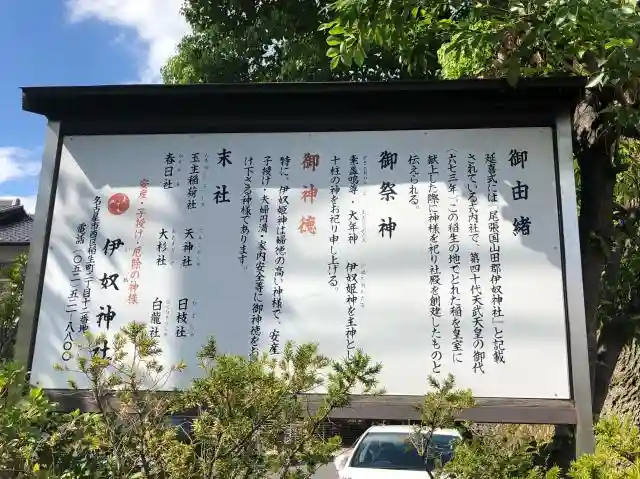 御由緒
延喜式には、「尾張国山田郡伊奴神社」と記載
されている式内社で、第四十代天武天皇の御代
(六七三年)この稲生の地でとれた稲を皇室に
献上した際に神様を祀り社殿を創建したものと
伝えられる。
御祭神
素盞嗚尊・大年神 伊奴姫神を主神とし
十柱の神をお祀り申し上げる。
御神徳
特に、伊奴姫神は縁徳の高い神様で、安産
子授け・夫婦円満・家内安全等に御神徳をお
け下さる神様であります。
末社
玉主稲荷社 天神社 日枝社
春日社 大杉社 白龍社
安産・子授け・厄除の神様
伊奴神社
名古屋市西区稲生町二丁目十二番地
電話〇五二・五二一・八八〇〇